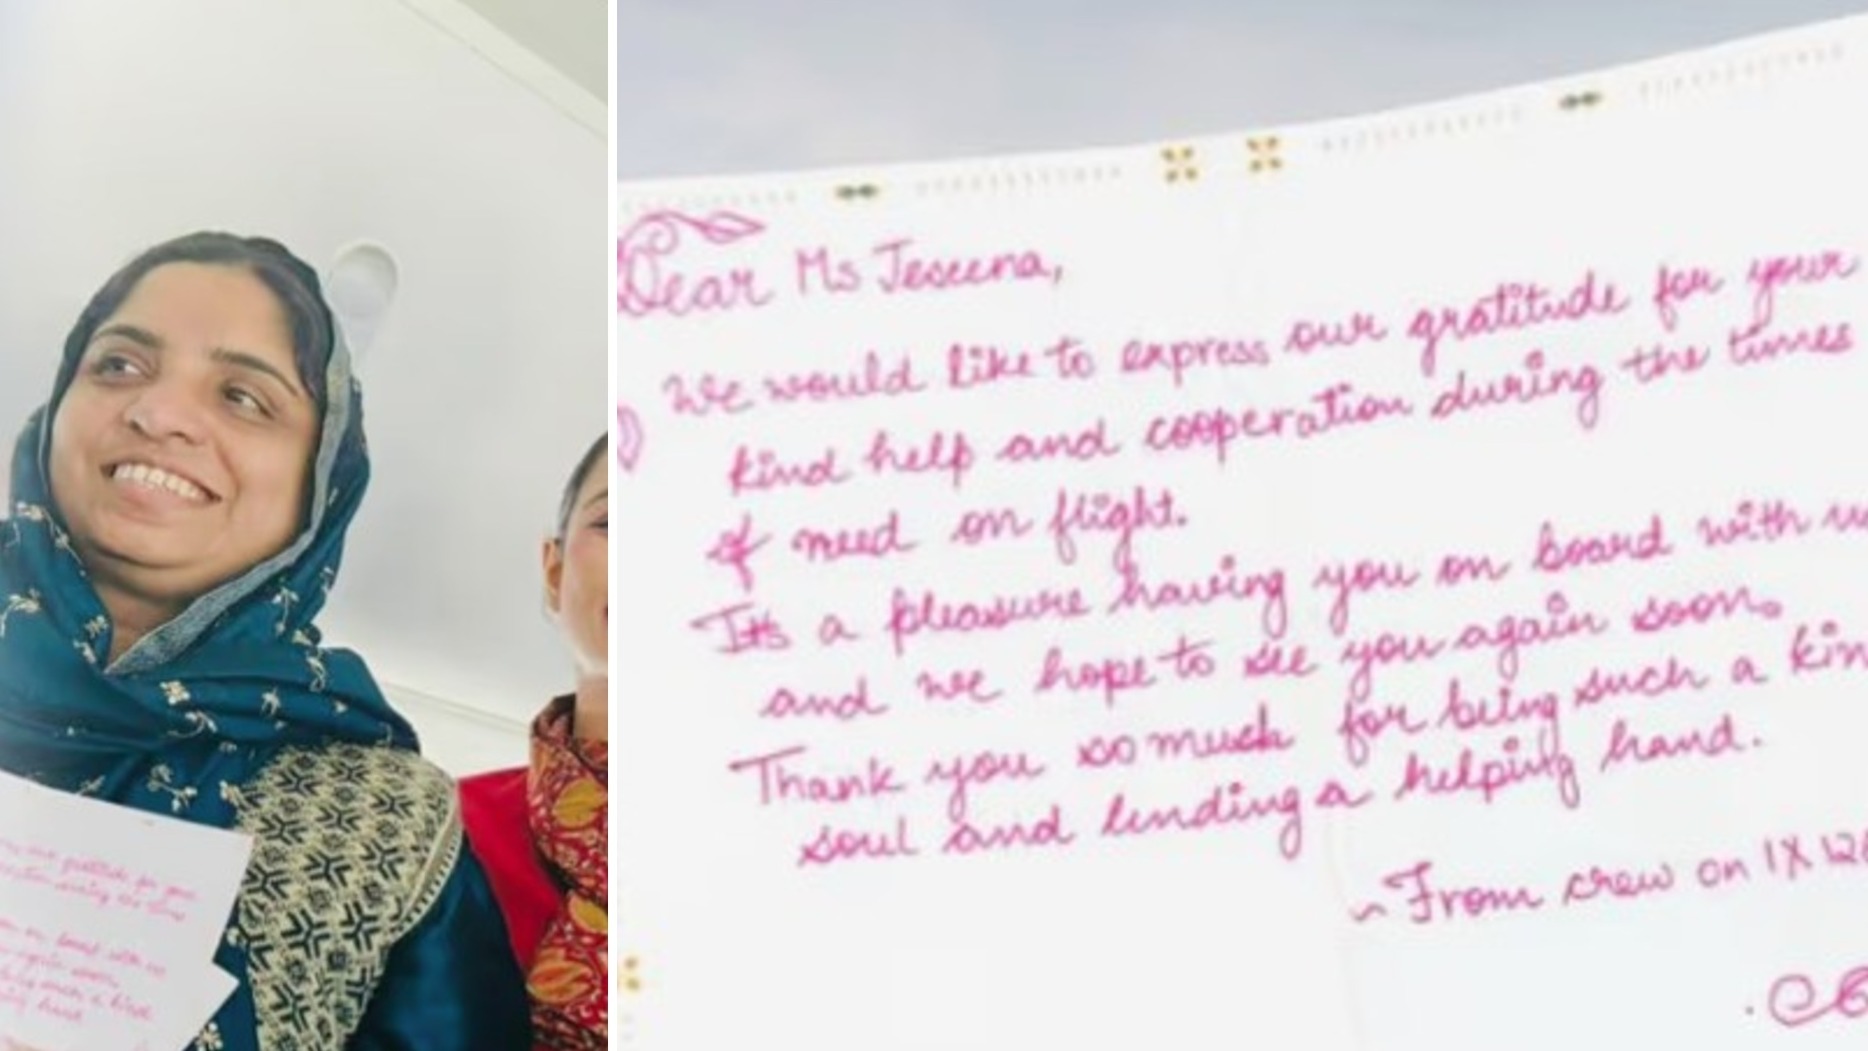 Dear Ms Jeseena,
We would like to express our gratitude for your
kind help and cooperation during the times
of need on flight.
It's a pleasure having you on board with
and we hope to see you again soon.
Thank you so much for being such a
soul and lending a helping hand.
~From crew on IX